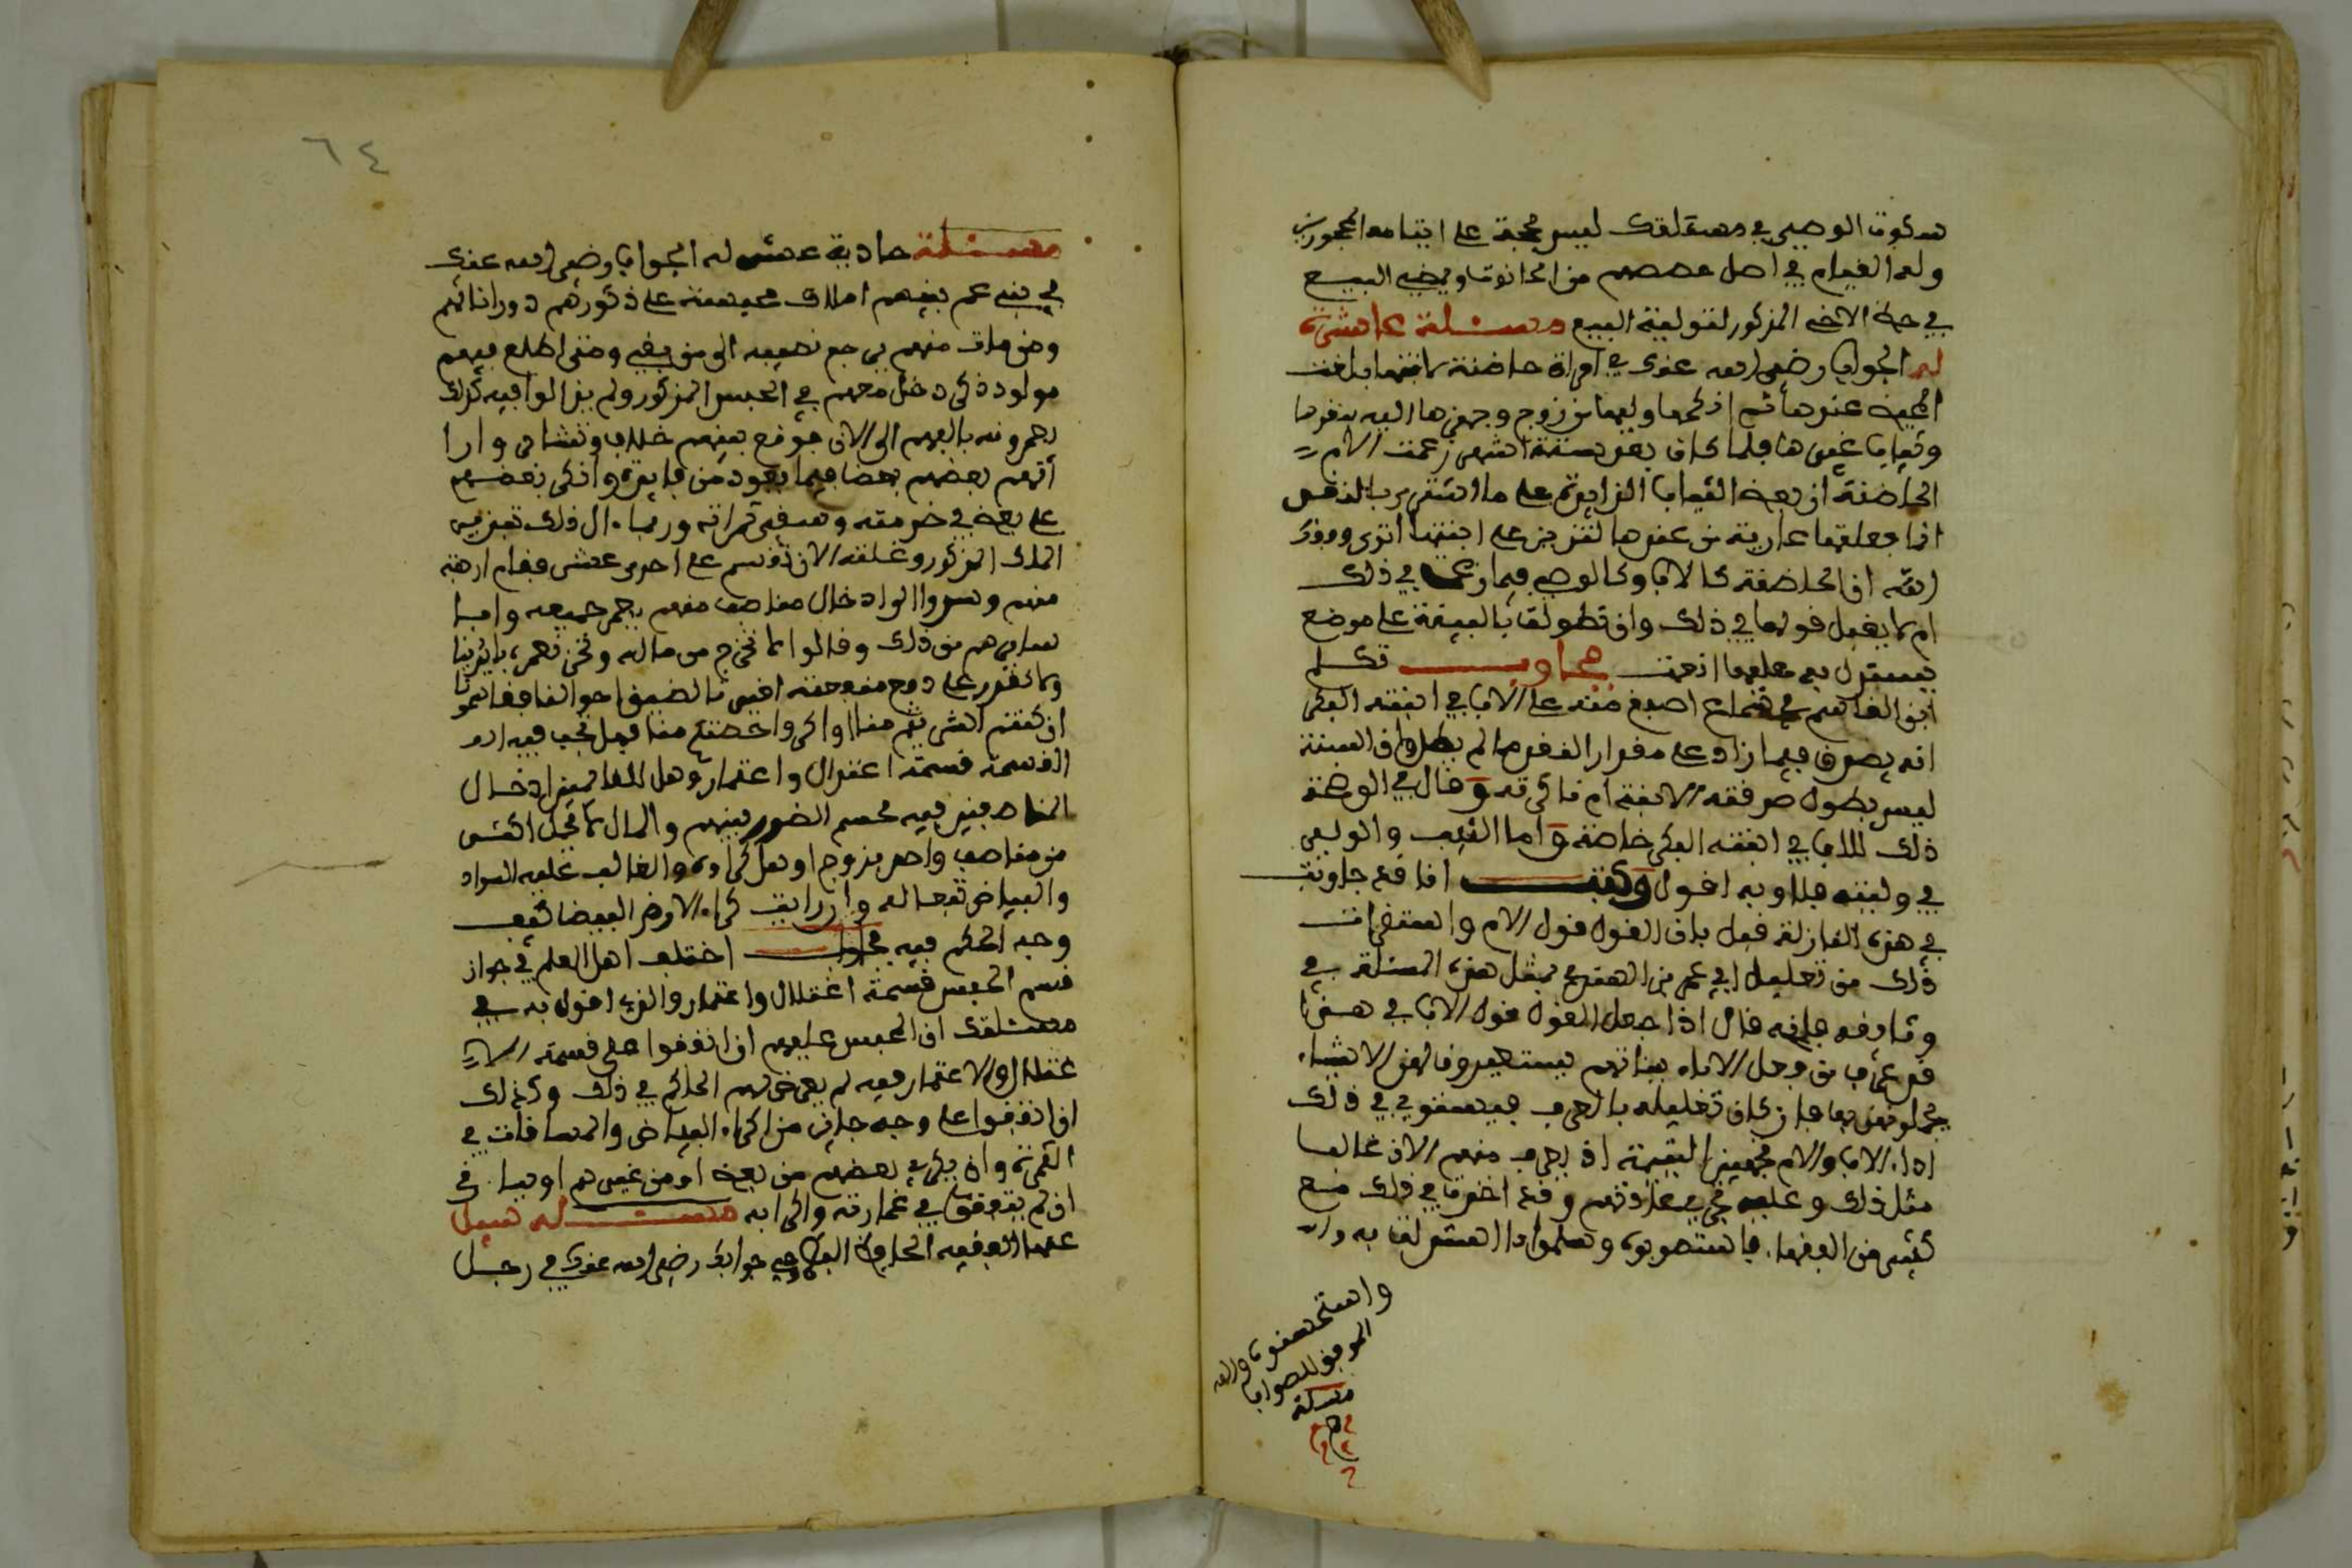 سكوت الوصي في مسئلتك ليس بحجة على ايتامه المحجورين
ولهم القيام في اصل حصصهم من الحانوت ويمضي البيع
في حظ الاخ المذكور لتوليته البيع مسئلة عاشرة
له الجواب رضي الله عنك في امراة حاضنة لابنتها بلغت
الحيض عندها ثم انكحها وليها من زوج وجهزها اليه بنقدها
وثياب غيرها فلما كان بعد ستة اشهر زعمت الام
الحاضنة ان بعض الثياب الزايدة على ما اشتري بالنقد
انما جعلتها عارية من عندها لتتزين على ابنتها اترى وفقك
الله ان الحاضنة كالاب وكالوصي فيما زعمت في ذلك
ام لا يقبل قولها في ذلك وان طولت بالبينة على موضع
يستدل به عليها ان عجزت جاوب تكلم
ابن القاسم في سماع اصبغ منه على الاب في ابنته البكر
انه يصدق فيما زاد على مقدار النقد ما لم يطل وان السنة
ليس بطول صدقته الابنة ام ناكرته وقال في الواضحة
ذلك للاب في ابنته البكر خاصة واما الثيب والولي
في وليته فلا وبه اقول وكتبت انا قد جاوبت
في هذه النازلة قبل بان القول قول الام واستقرات
ذلك من تعليل ابي عمر بن الهندي لمثل هذه المسئلة في
وثايقه فانه قال اذا جعل القول قول الاب في هذا
قد عرف من فعل الاباء ببناتهم يستعيرون لهن الاشياء
يجملونهن بها فان كان تعليله بالعرف فيستوي في ذلك
اداء الاب والام تجهيز اليتيمة اذ يعرف منهم الان غالبا
مثل ذلك وعليه تجري معارفتهم وقد اخبرت في ذلك مع
كثير من الفقهاء فاستصوبوه وسلموا ما استدللت به
واستحسنوه والله
الموفق للصواب
مسئلة
مسئلة حادية عشر له الجواب رضي الله عنك
في بني عم بينهم املاك محبسة على ذكورهم دون اناثهم
ومن مات منهم يرجع نصيبه الى من بقي ومتى اطلع فيهم
مولود ذكر دخل معهم في الحبس المذكور ولم يزالوا فيه كذلك
يعمرونه بالسهم الى الان فوقع بينهم خلاف وتشاجر وارا
اتهم بعضهم بعضا فيما يعود من فايدة وانكر بعضهم
على بعض في خدمته وسقي ثمراته وربما ال ذلك تعزيب
الملك المذكور وغلته الان تقسم على احدى عشر فقام اربعة
منهم وسروا الى ادخال مناصف منهم يعمر جميعه وابا
سايرهم من ذلك وقالوا لا نخرج من ماله ونحن نعمره بايدينا
ولا نقدر على دفع منفعته لغيرنا لضيق احوالنا فقالوا
ان كنتم اشرتم منا او اكروا حصتكم منا فهل يجب فيه ادم
القسمة قسمة اغتلال واعتمار وهل للقايمين ادخال
المناصفين فيه لحسم الضرر بينهم والمال لا يحمل اكثر
من مناصف واحد بزوج او هل كراؤه والغالب عليه السواد
والبياض تبعا له وان رايت كراء الارض البيضاء كيف
وجه الحكم فيه جاوب اختلف اهل العلم في جواز
قسم الحبس قسمة اغتلال واعتمار والذي اقول به في
مسئلتك ان المحبس عليهم ان اتفقوا على قسمة الا
غتلال والاعتمار فيه لم يعرض لهم الحاكم في ذلك وكذلك
ان اتفقوا على وجه جايز من اكراء البياض والمساقات في
الثمرة وان يكري بعضهم من بعض او من غيرهم او يساقي
ان لم يتوقف في عمارته والى ابه مسئلة له سيل
عنها الفقيه الحافظ جوابك رضي الله عنك في رجل
٦٤